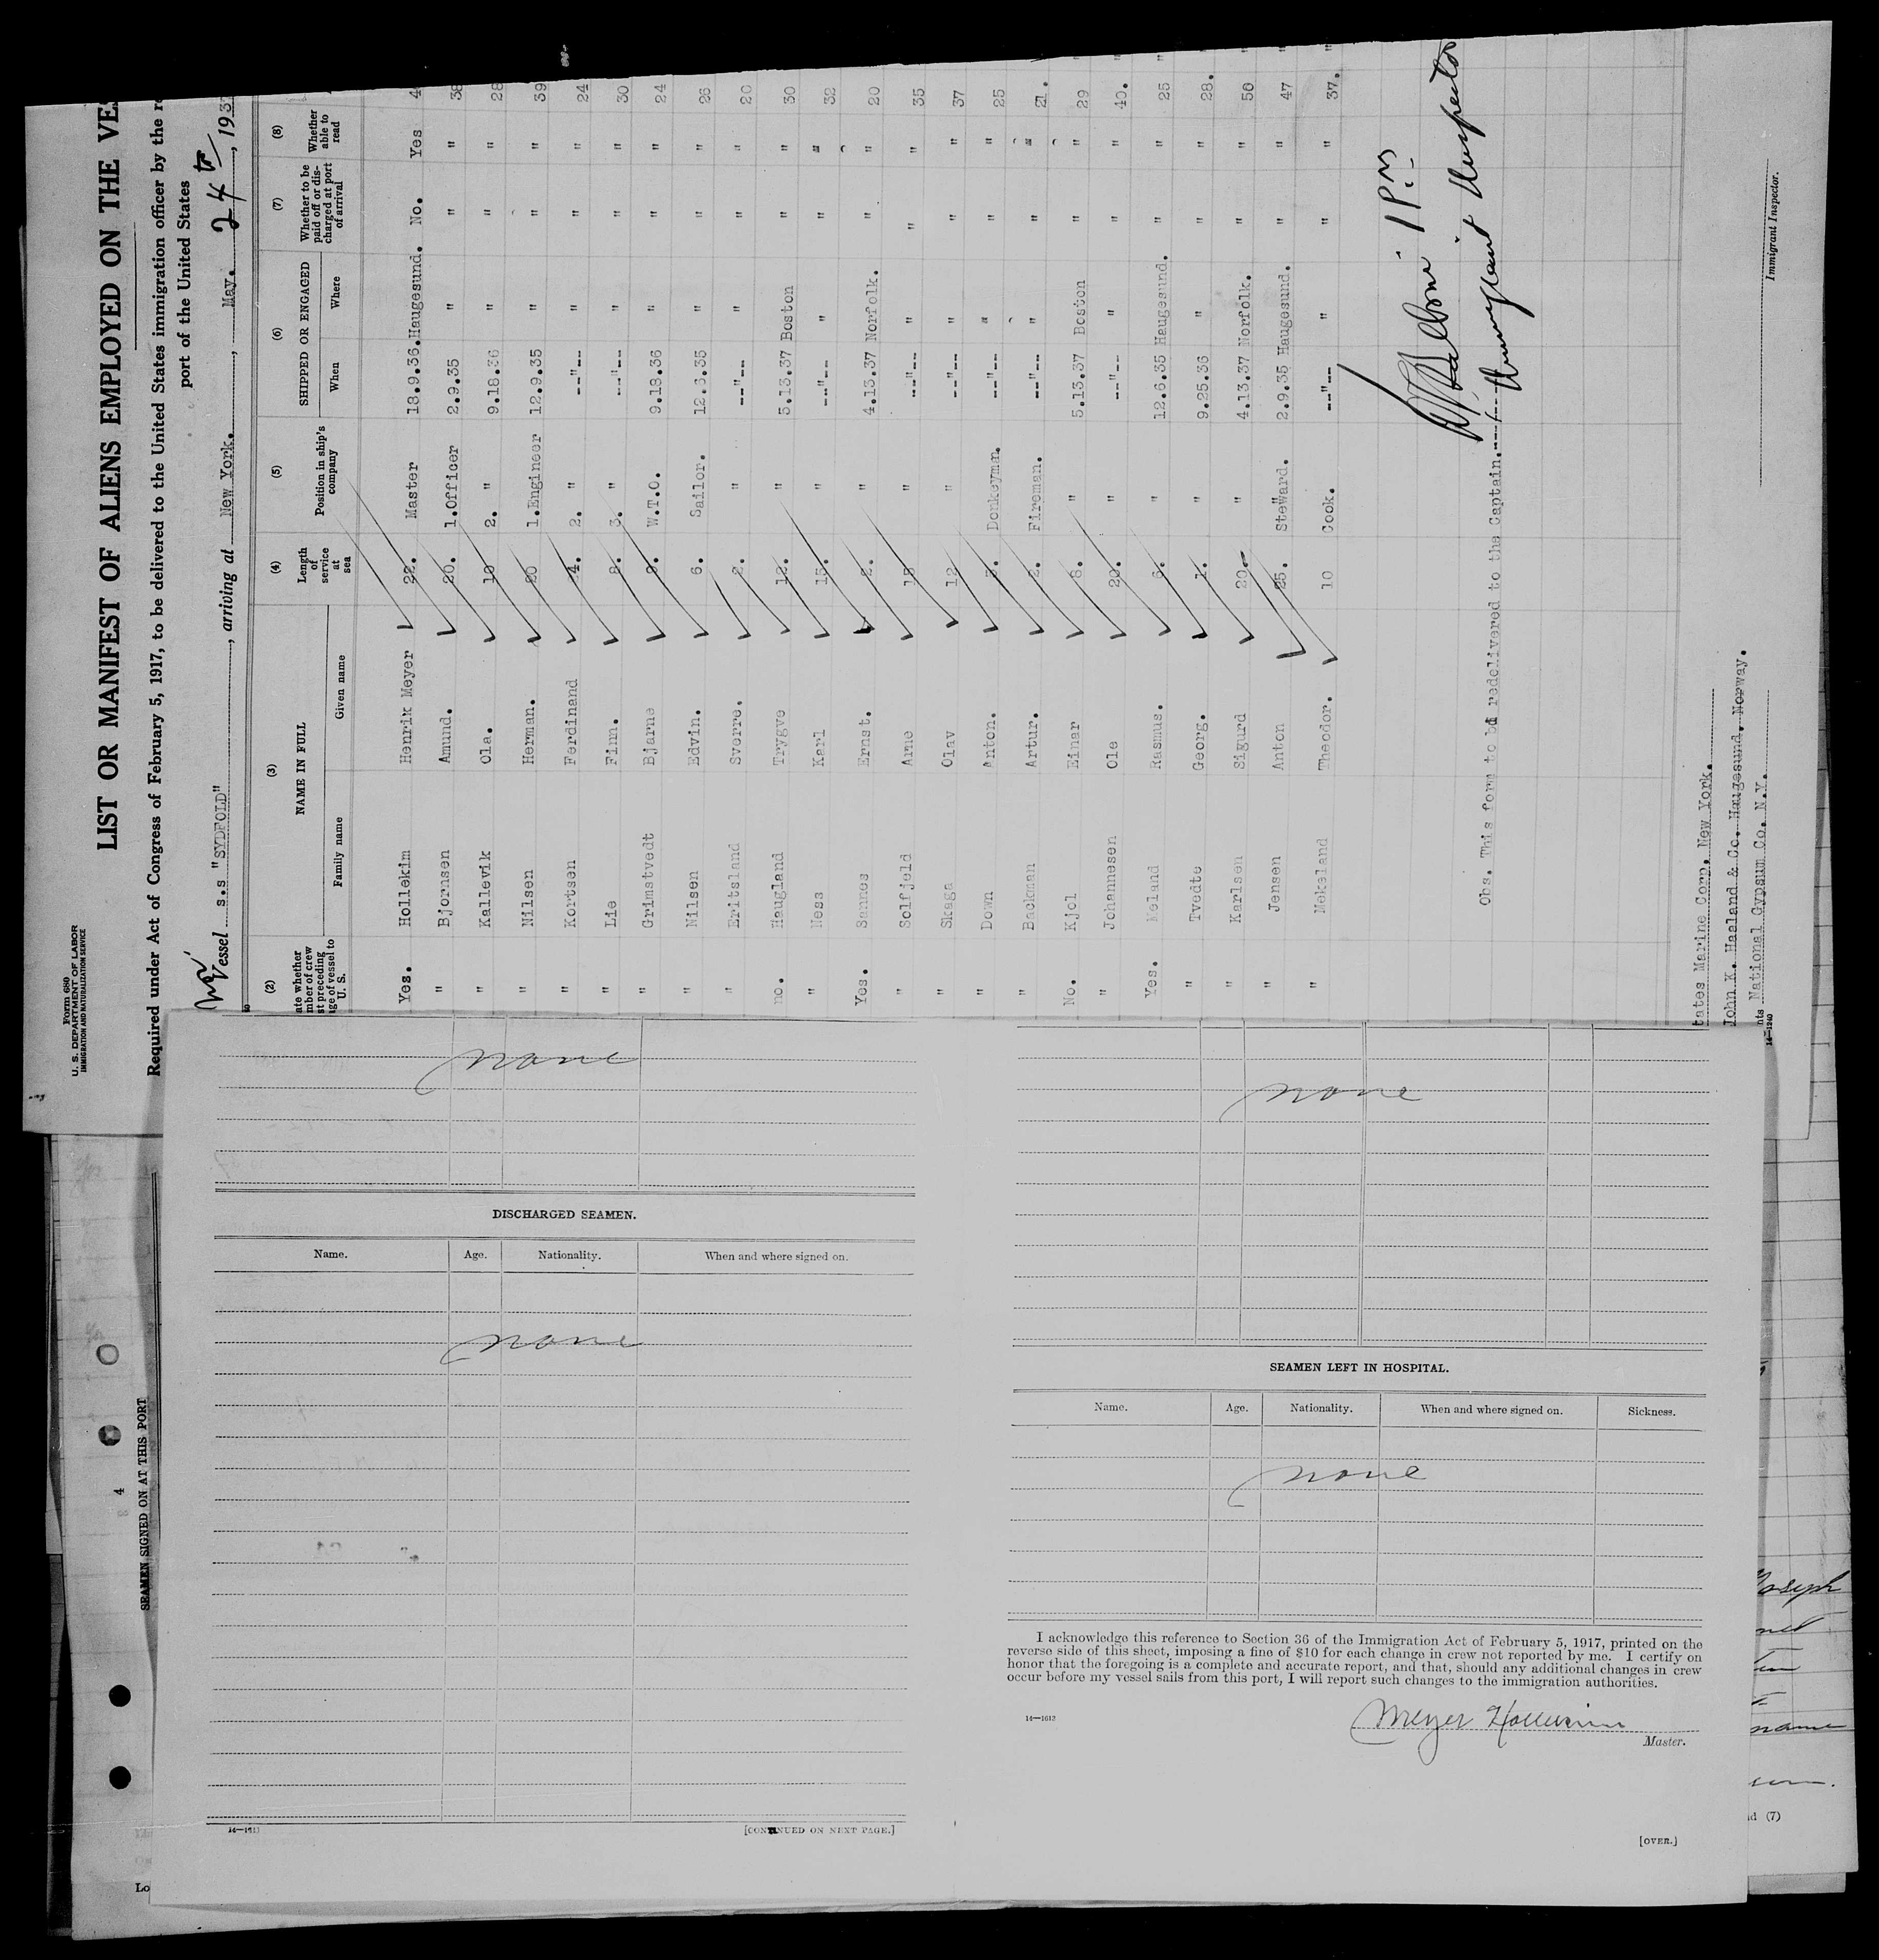 Form 680
U. S. DEPARTMENT OF LABOR
IMMIGRATION AND NATURALIZATION SERVICE
LIST OR MANIFEST OF ALIENS EMPLOYED ON THE VES
Required under Act of Congress of February 5, 1917, to be delivered to the United States immigration officer by the re
port of the United States
Vessel s.s "SYDFOLD", arriving at New York., May. 24th, 193
(2) (3) (4) (5) (6) (7) (8)
ate whether mber of crew st preceding age of vessel to U. S. NAME IN FULL Length of service at sea Position in ship's company SHIPPED OR ENGAGED Whether to be paid off or discharged at port of arrival Whether able to read
Family name Given name When Where
Yes. Hollekim Henrik Meyer 22. Master 18.9.36. Haugesund. No. Yes 4
" Bjornsen Amund. 20. 1.Officer 2.9.35 " " " 38
" Kallevik Ola. 10 2. " 9.18.36 " " " 28
" Nilsen Herman. 20 1.Engineer 12.9.35 " " " 39
" Kortsen Ferdinand 4. 2. " --"-- " " " 24
" Lie Finn. 8. 3. " --"-- " " " 30
" Grimstvedt Bjarne 9. W.T.O. 9.18.36 " " " 24
" Nilsen Edvin. 6. Sailor. 12.6.35 " " " 26
" Eritsland Sverre. 2. " --"-- " " " 20
no. Haugland Trygve 12. " 5.13.37 Boston " " 30
" Ness Karl 15. " --"-- " " " 32
Yes. Sannes Ernst. 2. " 4.13.37 Norfolk. " " 20
" Solfjeld Arne 15 " --"-- " " " 35
" Skaga Olav 12 " --"-- " " " 37
" Down Anton. Donkeyman. --"-- " " " 25
" Backman Artur. 2. Fireman. --"-- " " " 21.
No. Kjol Einar 8. " 5.13.37 Boston " " 29
" Johannesen Ole 20. " --"-- " " " 40.
Yes. Meland Rasmus. 6. " 12.6.35 Haugesund. " " 25
" Tvedte Georg. 1. " 9.25.36 " " " 28.
" Karlsen Sigurd 20. " 4.13.37 Norfolk. " " 50
" Jensen Anton 25. Steward. 2.9.35 Haugesund. " " 47
" Mekeland Theodor. 10 Cook. --"-- " " " 37.
1 P.M
Immigrant Inspector
Obs. This form to be redelivered to the Captain.
Immigrant Inspector.
tates Marine Corp. New York.
John K. Haaland & Co. Haugesund. Norway.
nts National Gypsum Co. N.Y.
14—1240
none
DISCHARGED SEAMEN.
Name. Age. Nationality. When and where signed on.
none
14—1611
[CONTINUED ON NEXT PAGE.]
none
SEAMEN LEFT IN HOSPITAL.
Name. Age. Nationality. When and where signed on. Sickness.
none
I acknowledge this reference to Section 36 of the Immigration Act of February 5, 1917, printed on the
reverse side of this sheet, imposing a fine of $10 for each change in crew not reported by me. I certify on
honor that the foregoing is a complete and accurate report, and that, should any additional changes in crew
occur before my vessel sails from this port, I will report such changes to the immigration authorities.
14—1612
Meyer Hollekim
Master.
[OVER.]
4
SEAMEN SIGNED ON AT THIS PORT
Lo
Joseph
name
d (7)